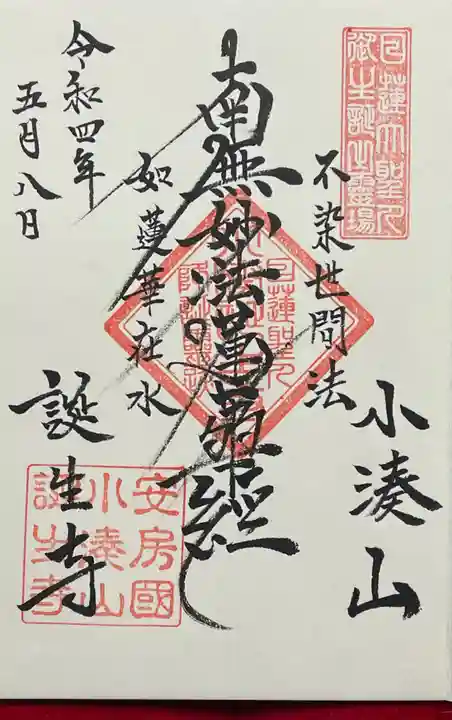 日蓮大聖人
御生誕之霊場
小湊山
不染世間法
南無妙法蓮華経
如蓮華在水
令和四年
五月八日
誕生寺
日蓮聖人
安房國
小湊山
誕生寺